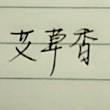 艾草香